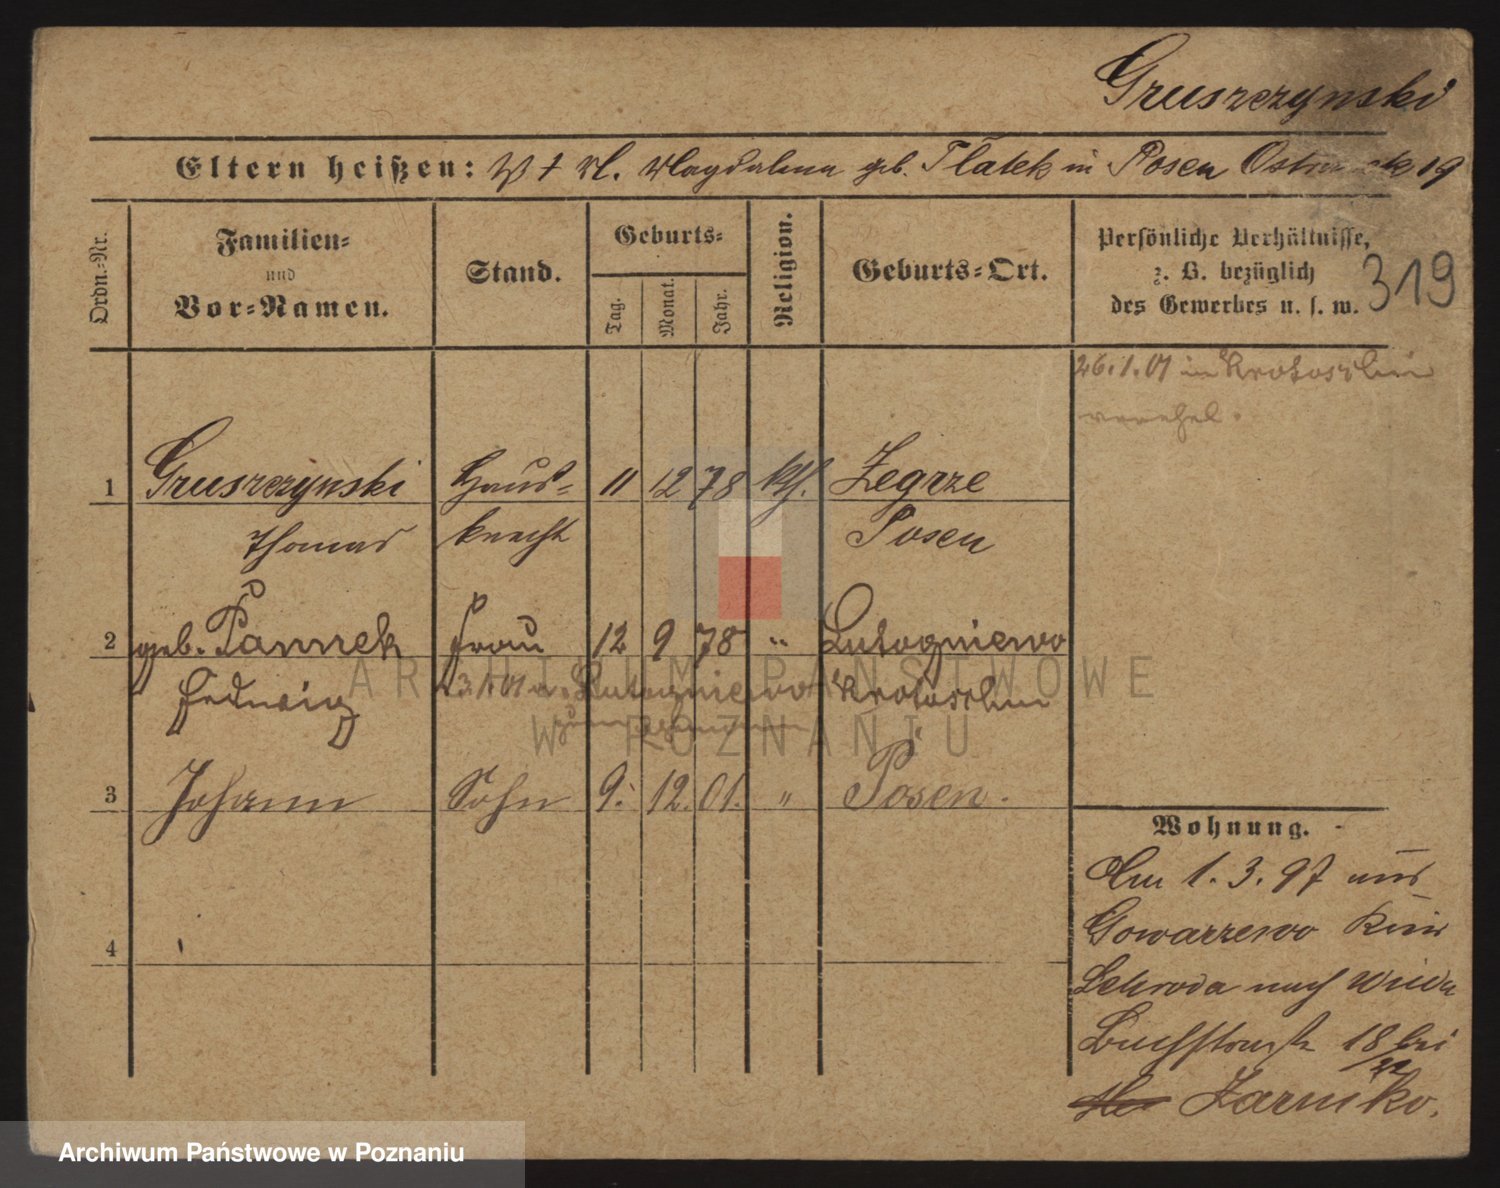 Gruszczynski
Eltern heißen: V † M. Magdalena geb. Tlatek in Posen 19
Ordn.-Nr.
Familien-
und
Vor-Namen.
Stand.
Geburts-
Tag.
Monat.
Jahr.
Religion.
Geburts-Ort.
Persönliche Verhältnisse,
z. B. bezüglich
des Gewerbes u. s. w.
319
26.1.01 in Krotoschin
verehel.
1 Gruszczynski Haus- 11 12 78 kth. Zegrze
Thomas knecht Posen
2 geb. Pannek Frau 12 9 78 " Lutogniewo
Hedwig 23.1.01 v. Lutogniewo Krotoschin
3 Johann Sohn 9. 12. 01. " Posen.
4
Wohnung.
Am 1. 3. 97 aus
Gowarzewo Kreis
Schroda nach Wieder
Buchstraße 18 bei
22
Zarniko.
ARCHIWUM PAŃSTWOWE
W POZNANIU
Archiwum Państwowe w Poznaniu